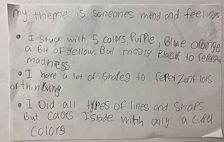 my theme is someones mind and feelings
• I stuck with 5 colors Purple, Blue orange
a Bit of yellow. But mostly Black to
madness
• I have a lot of shapes to
of thinking
• I Did all types of lines and shaps
But colors I with only a
colors